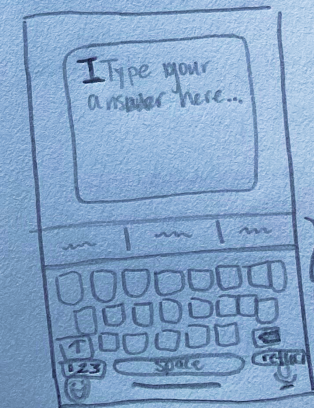 Type your
answer here...
123
space
return